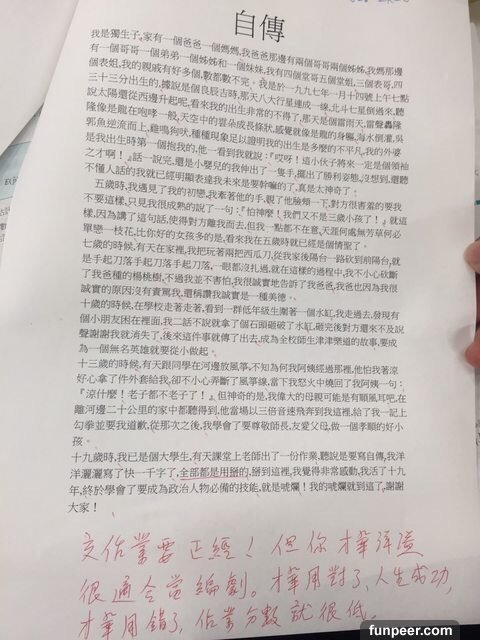 自傳
我是獨生子，家有一個爸爸一個媽媽，我爸爸那邊有兩個哥哥兩個姊姊，我媽那邊
有一個哥哥一個弟弟一個姊姊和一個妹妹，我有四個堂哥五個堂姐，三個表哥，四
個表姐，我的親戚有好多個，數都數不完。我是於一九九七年一月十四號上午七點
三十三分出生的，據說是個良辰吉時，那天八大行星連成一線，北斗七星倒過來，聽
說太陽還從西邊升起呢，看來我的出生非常的不得了，那天是個雷雨天，雷聲轟隆
隆像是龍在咆哮一般，天空中的雲朵成長條狀，感覺就像是龍的身軀，海水倒灌，吳
郭魚逆流而上，雞鳴狗吠，種種現象足以證明我的出生是多麼的不平凡，我的外婆
是我出生時第一個抱我的，他一看到我就說：『哎呀！這小伙子將來一定是個領袖
之才啊！』話一說完，還是小嬰兒的我伸出了一隻手，擺出了勝利姿態，沒想到，還聽
不懂人話的我就已經明顯表達我未來是要幹嘛的了，真是太神奇了；
五歲時，我遇見了我的初戀，我牽著他的手，親了他臉頰一下，對方很害羞的要我
不要這樣，只見我很成熟的說了一句：『怕神麼！我們又不是三歲小孩了！』就這
樣，因為講了這句話，使得對方離我而去，但我一點都不在意，天涯何處無芳草何必
單戀一枝花，比你好的女孩多的是，看來我在五歲時就已經是個情聖了。
七歲的時候，有天在家裡，我把玩著兩把西瓜刀，從我家後陽台一路砍到前陽台，就
是手起刀落手起刀落手起刀落，一眼都沒扎過，就在這樣的過程中，我不小心砍斷
了我爸種的楊桃樹，不過我並不害怕，我很誠實地告訴了我爸爸，我爸也因為我很
誠實的原因沒有責罵我，還稱讚我誠實是一種美德。
十歲的時候，在學校走著走著，看到一群低年級生圍著一個水缸，我走過去，發現有
個小朋友困在裡面，我二話不說就拿了個石頭砸破了水缸，砸完後對方還來不及說
聲謝謝我就消失了，後來這件事就傳了出去，成為全校師生津津樂道的故事，要成
為一個無名英雄就要從小做起。
十三歲的時候，有天跟同學在河邊放風箏，不知為何我阿姨經過那裡，他怕我著涼
好心拿了件外套給我，卻不小心弄斷了風箏線，當下我怒火中燒回了我阿姨一句：
『涼什麼！老子都不老子了！』但神奇的是，我偉大的母親可能是有順風耳吧，在
離河邊二十公里的家中都聽得到，他當場以三倍音速飛奔到我這裡，給了我一記上
勾拳並要我道歉，從那次之後，我學會了要尊敬師長，友愛父母，做一個孝順的好小
孩。
十九歲時，我已是個大學生，有天課堂上老師出了一份作業，聽說是要寫自傳，我洋
洋灑灑寫了快一千字了，全部都是用掰的，掰到這裡，我覺得非常感動，我活了十九
年，終於學會了要成為政治人物必備的技能，就是唬爛！我的唬爛就到了這，謝謝
大家！
交作業要正經！但你才華洋溢
很適合當編劇。才華用對了，人生成功，
才華用錯了，作業分數就很低。
funpeer.com